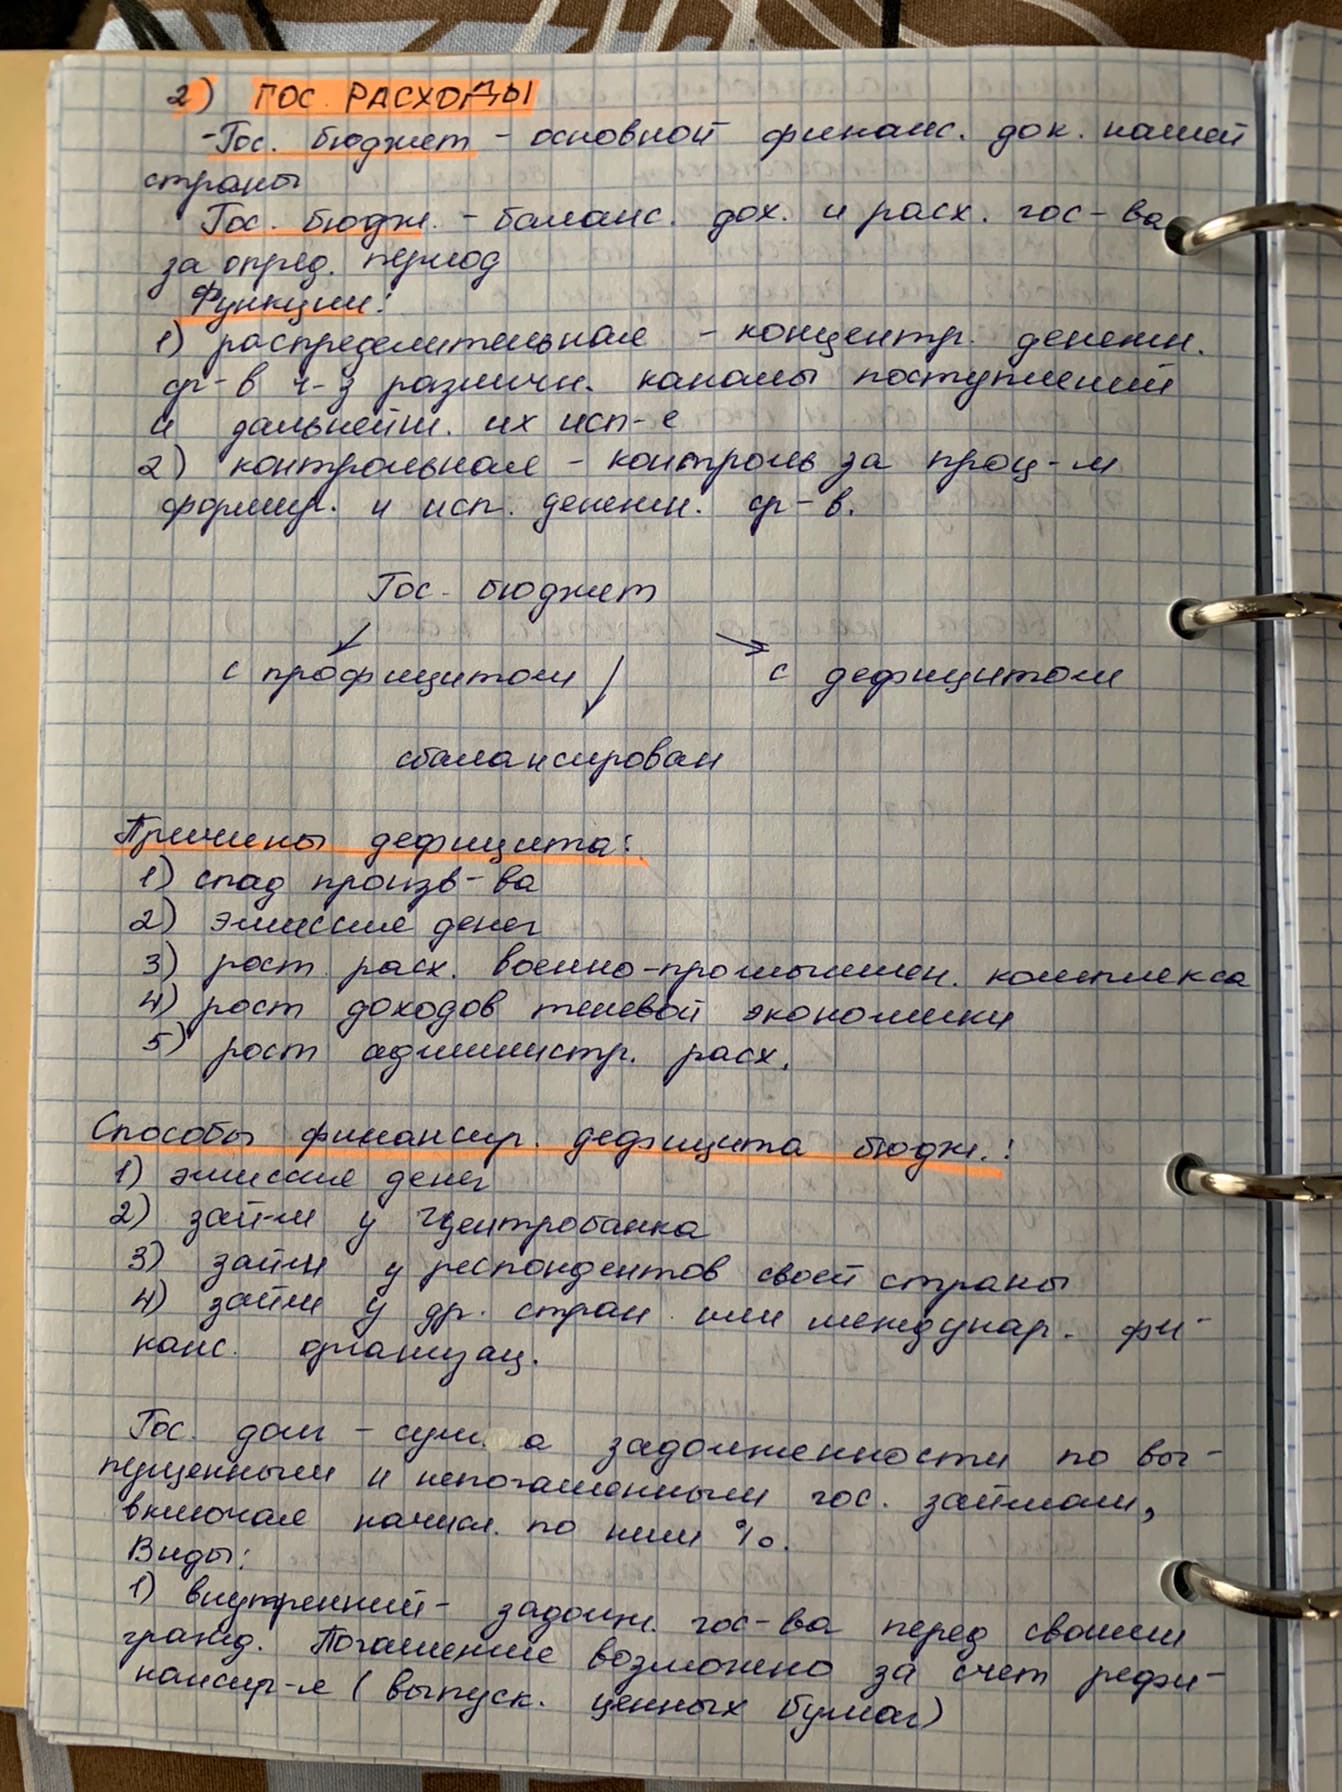 2) ГОС. РАСХОДЫ
- Гос. бюджет - основной финанс. док. нашей
страны
Гос. бюдж. - баланс. дох. и расх. гос-ва
за опред. период
Функции:
1) распределительная - концентр. денежн.
ср-в ч-з различн. каналы поступлений
и дальнейш. их исп-е
2) контрольная - контроль за проц-м
формир. и исп. денежн. ср-в.
Гос. бюджет
с профицитом с дефицитом
сбалансирован
Причины дефицита:
1) спад произв-ва
2) эмиссия денег
3) рост расх. военно-промышлен. комплекса
4) рост доходов теневой экономики
5) рост администр. расх.
Способы финансир. дефицита бюдж.:
1) эмиссия денег
2) займ у Центробанка
3) займ у респондентов своей страны
4) займ у др. стран или междунар. фи-
нанс. организац.
Гос. долг - сумма задолженности по вы-
пущенными и непогашенными гос. займам,
включая начисл. по ним %.
Виды:
1) внутренний - задолж. гос-ва перед своими
гражд. Погашение возможно за счет рефи-
нансир-я (выпуск. ценных бумаг)